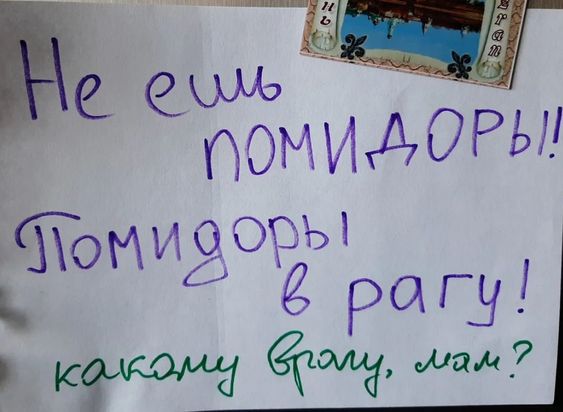 нь
zran
Не ешь
ПОМИДОРЫ!!
Помидоры
в рагу!
какому врагу, мам?